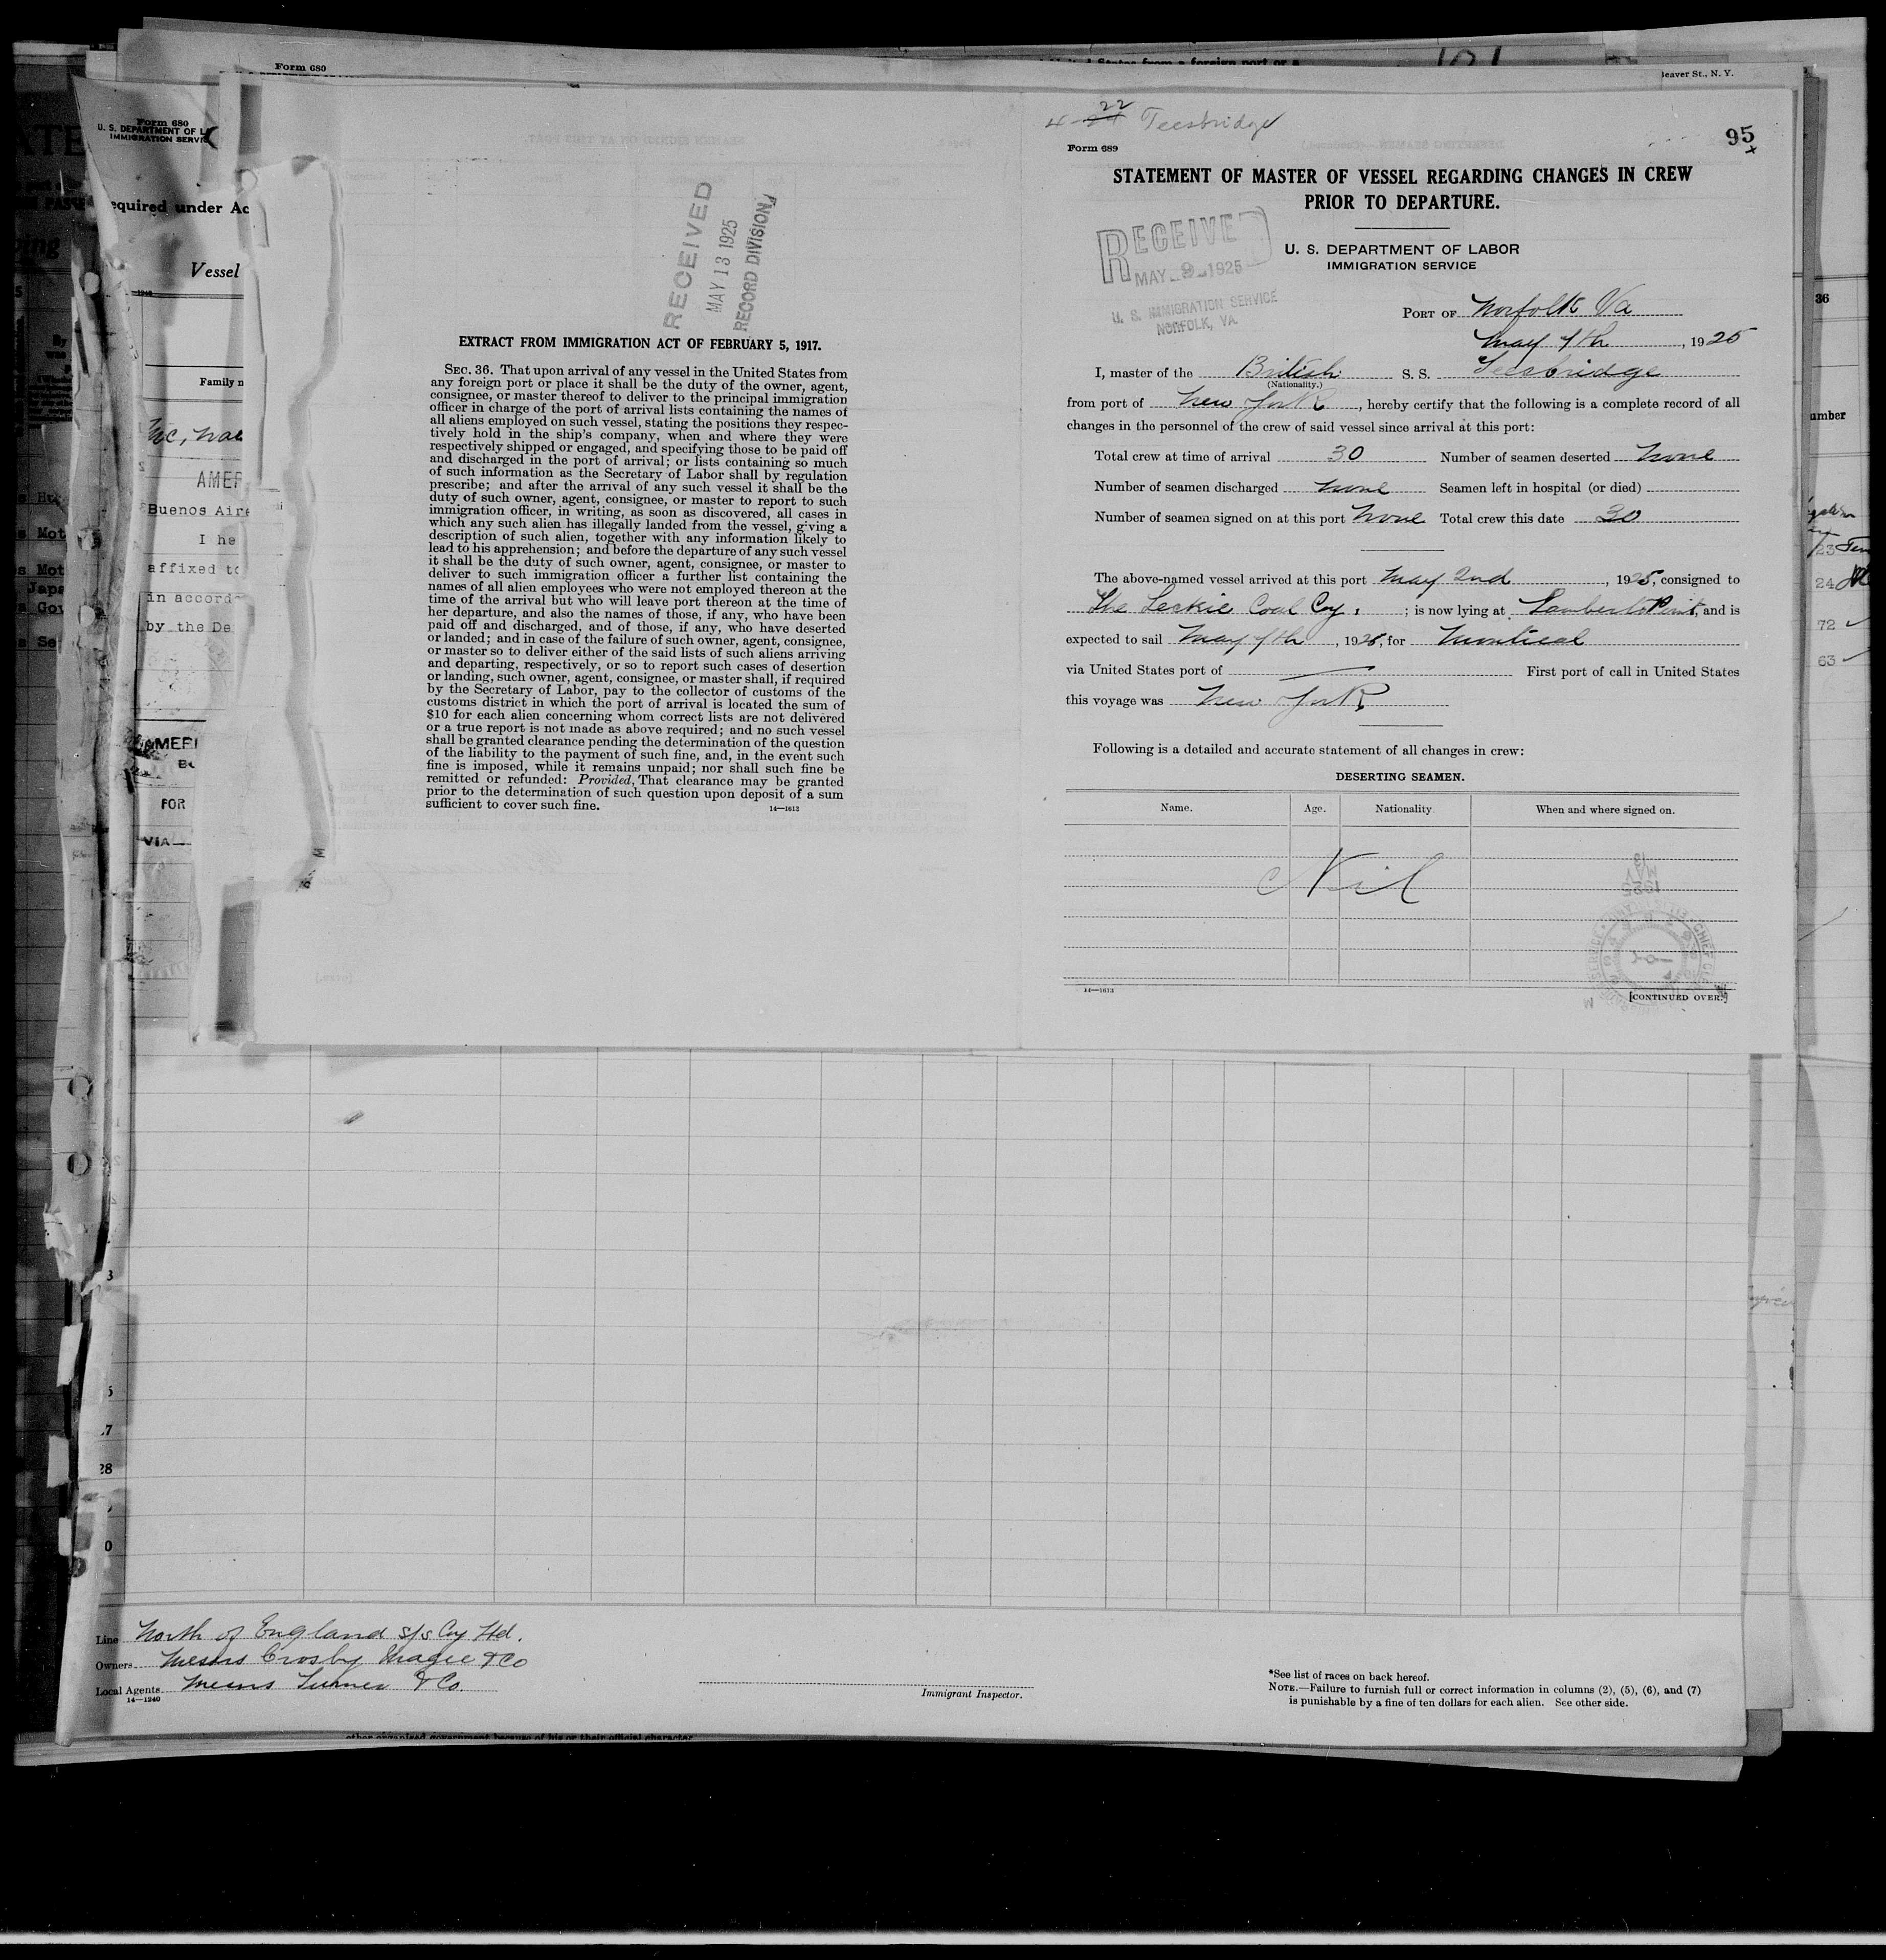 Form 680
leaver St., N. Y.
Form 680
U. S. DEPARTMENT OF L
IMMIGRATION SERVIC
equired under Ac
Vessel
Family n
AMER
Buenos Aire
I he
affixed to
in accord
by the De
AMERI
FOR
VIA
RECEIVED
MAY 13 1925
RECORD DIVISION
EXTRACT FROM IMMIGRATION ACT OF FEBRUARY 5, 1917.
SEC. 36. That upon arrival of any vessel in the United States from
any foreign port or place it shall be the duty of the owner, agent,
consignee, or master thereof to deliver to the principal immigration
officer in charge of the port of arrival lists containing the names of
all aliens employed on such vessel, stating the positions they respec-
tively hold in the ship's company, when and where they were
respectively shipped or engaged, and specifying those to be paid off
and discharged in the port of arrival; or lists containing so much
of such information as the Secretary of Labor shall by regulation
prescribe; and after the arrival of any such vessel it shall be the
duty of such owner, agent, consignee, or master to report to such
immigration officer, in writing, as soon as discovered, all cases in
which any such alien has illegally landed from the vessel, giving a
description of such alien, together with any information likely to
lead to his apprehension; and before the departure of any such vessel
it shall be the duty of such owner, agent, consignee, or master to
deliver to such immigration officer a further list containing the
names of all alien employees who were not employed thereon at the
time of the arrival but who will leave port thereon at the time of
her departure, and also the names of those, if any, who have been
paid off and discharged, and of those, if any, who have deserted
or landed; and in case of the failure of such owner, agent, consignee,
or master so to deliver either of the said lists of such aliens arriving
and departing, respectively, or so to report such cases of desertion
or landing, such owner, agent, consignee, or master shall, if required
by the Secretary of Labor, pay to the collector of customs of the
customs district in which the port of arrival is located the sum of
$10 for each alien concerning whom correct lists are not delivered
or a true report is not made as above required; and no such vessel
shall be granted clearance pending the determination of the question
of the liability to the payment of such fine, and, in the event such
fine is imposed, while it remains unpaid; nor shall such fine be
remitted or refunded: Provided, That clearance may be granted
prior to the determination of such question upon deposit of a sum
sufficient to cover such fine. 14—1613
22
Teesbridge
95
Form 689
STATEMENT OF MASTER OF VESSEL REGARDING CHANGES IN CREW
PRIOR TO DEPARTURE.
U. S. DEPARTMENT OF LABOR
IMMIGRATION SERVICE
RECEIVED
MAY 9 1925
U. S. IMMIGRATION SERVICE
NORFOLK, VA.
PORT OF Norfolk Va
May 7th, 1925
I, master of the British S. S. Teesbridge
(Nationality.)
from port of New York, hereby certify that the following is a complete record of all
changes in the personnel of the crew of said vessel since arrival at this port:
Total crew at time of arrival 30 Number of seamen deserted None
Number of seamen discharged None Seamen left in hospital (or died)
Number of seamen signed on at this port None Total crew this date 30
The above-named vessel arrived at this port May 2nd, 1925, consigned to
The Leckie Coal Coy; is now lying at Lamberts Point, and is
expected to sail May 7th, 1925, for Montreal
via United States port of First port of call in United States
this voyage was New York
Following is a detailed and accurate statement of all changes in crew:
DESERTING SEAMEN.
Name. Age. Nationality When and where signed on.
Nil
14—1613
[CONTINUED OVER.]
Line North of England S/s Coy Ltd.
Owners Messrs Crosby Magee & Co
Local Agents Messrs Turner & Co.
14—1240
Immigrant Inspector.
*See list of races on back hereof.
NOTE.—Failure to furnish full or correct information in columns (2), (5), (6), and (7)
is punishable by a fine of ten dollars for each alien. See other side.